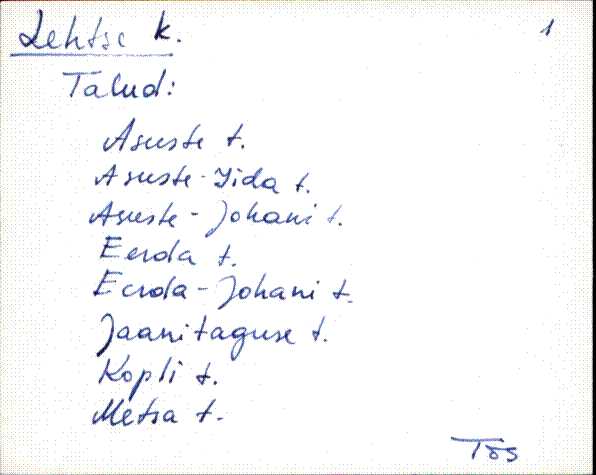 Lehtse k. 1
Talud:
Asuste t.
Asuste-Iida t.
Asuste-Johani t.
Eerda t.
Eerda-Johani t.
Jaanitaguse t.
Kopli t.
Metsa t.
Tõs